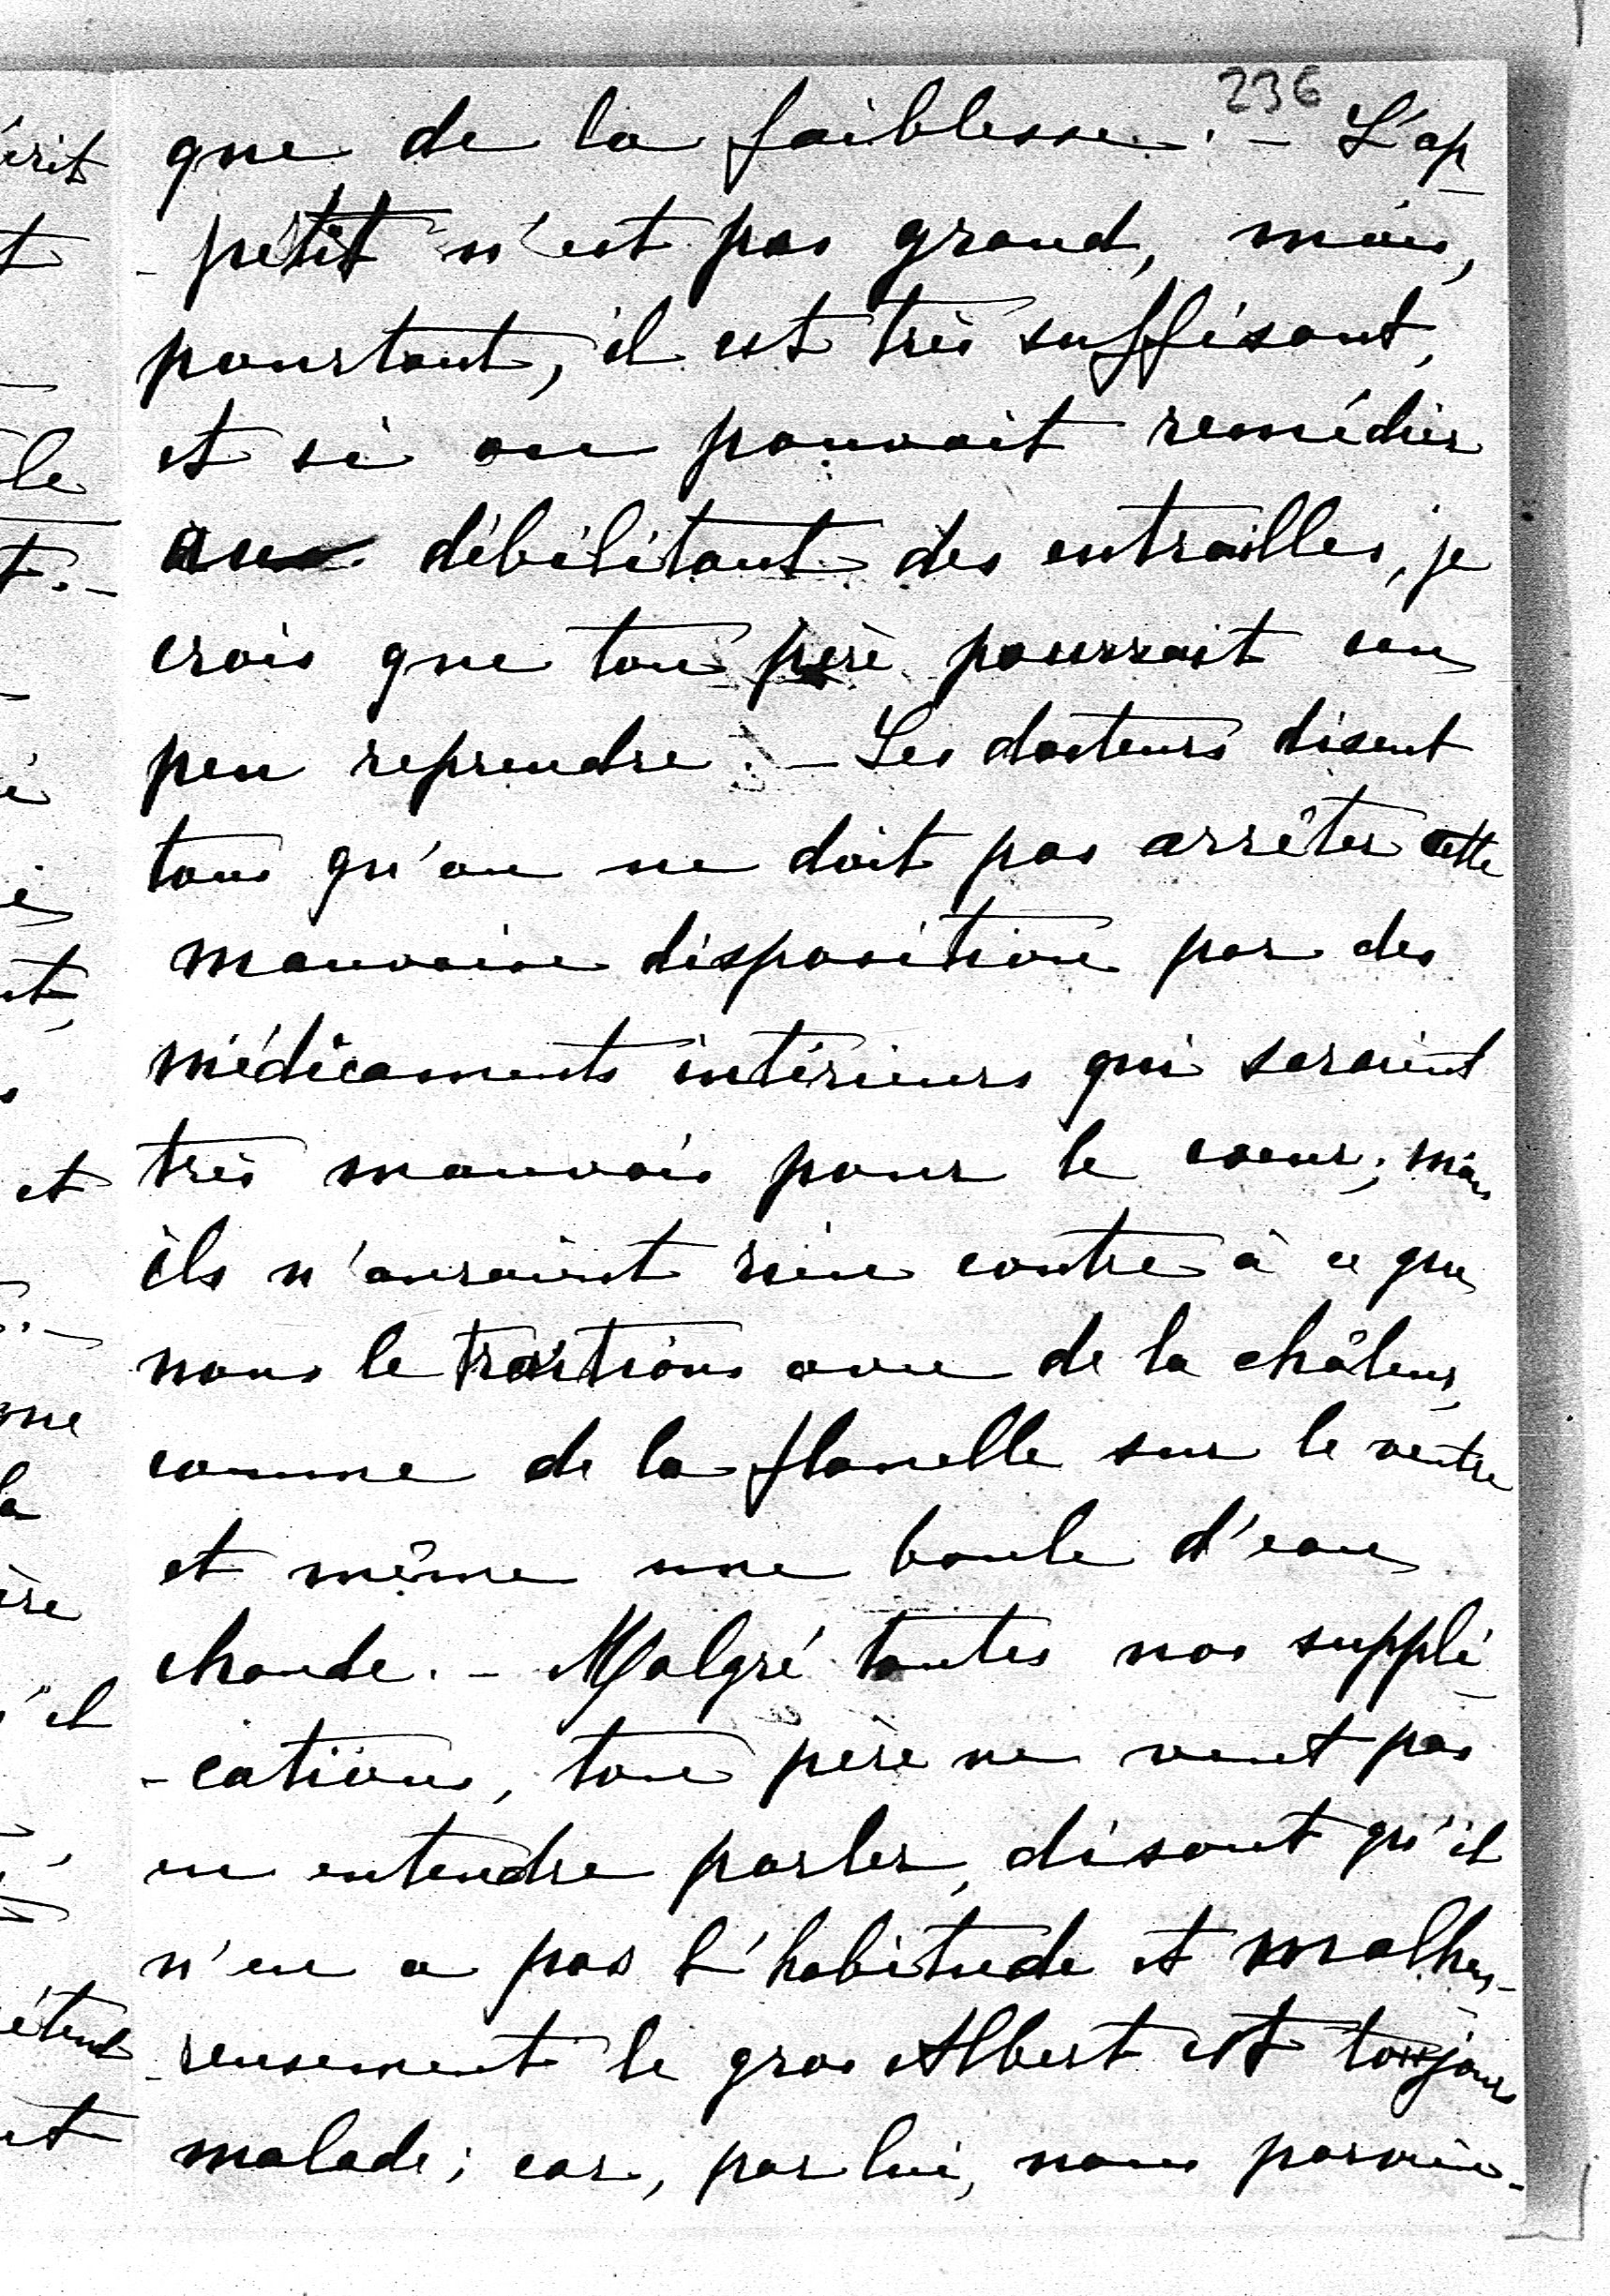 236
que de la faiblesse. – L'ap
-pétit n'est pas grand, mais,
pourtant, il est très suffisant,
et si on pouvait remédier
au débilitant des entrailles, je
crois que ton père pourrait un
peu reprendre. – Les docteurs disent
tous qu'on ne doit pas arrêter cette
mauvaise disposition par des
médicaments intérieurs qui seraient
très mauvais pour le coeur; mais
ils n'auraient rien contre à ce que
nous le traitions avec de la châleur,
comme de la flanelle sur le ventre
et même une boule d'eau
chaude. – Malgré toutes nos suppli-
-cations, ton père ne veut pas
en entendre parler, disant qu'il
n'en a pas l'habitude et malheu-
-reusement le gros Albert est toujours
malade; car, par lui, nous parvien-